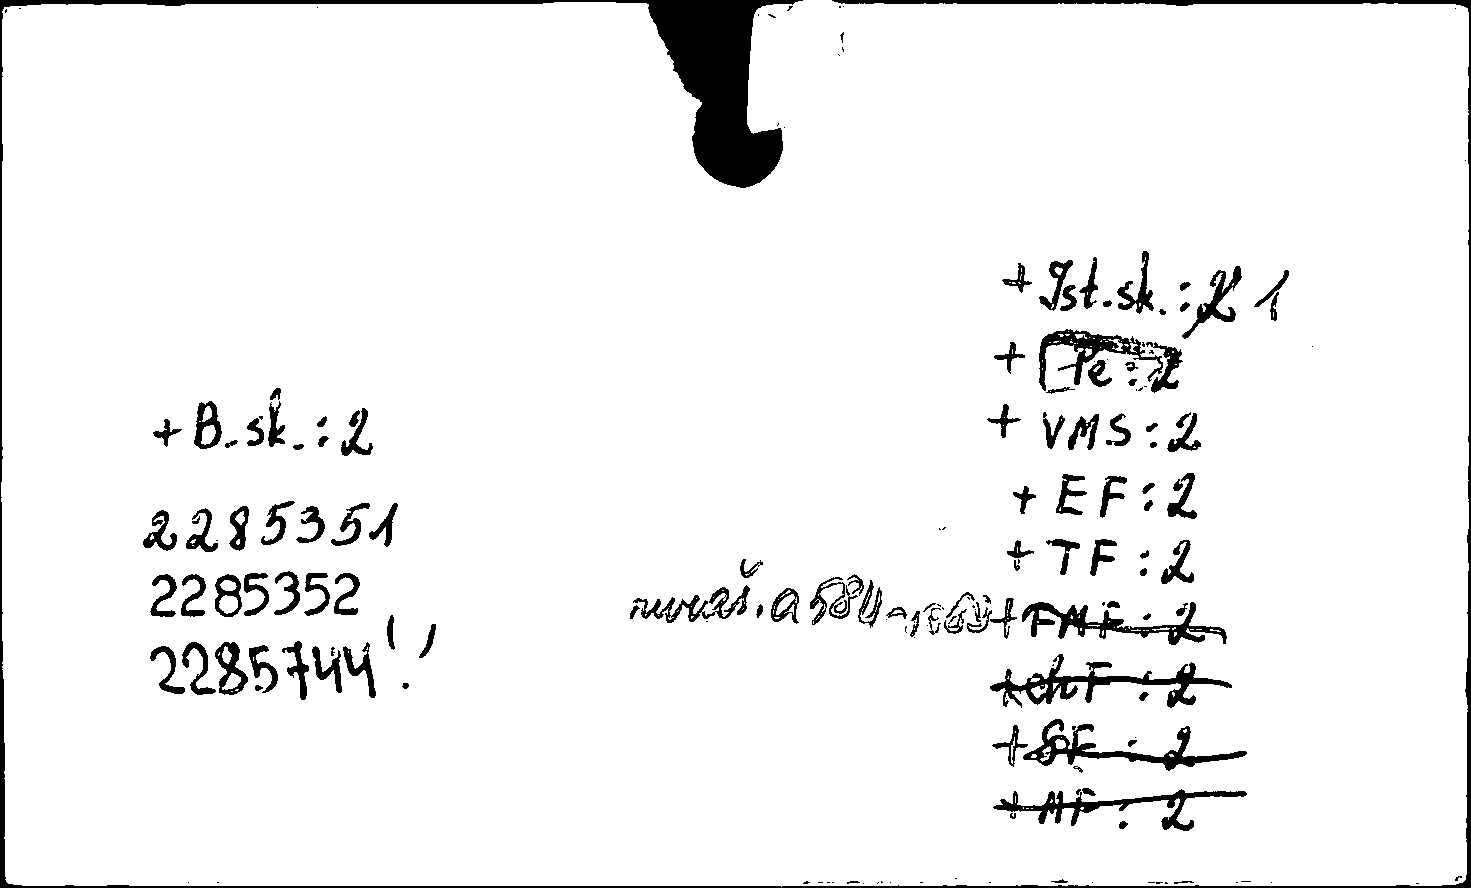 + B. sk. : 2
2285351
2285352
2285744!
+ Ist. sk. : 2 1
+ Pe : 2
+ VMS : 2
+ EF : 2
+ TF : 2
+ FMF : 2
+ ChF : 2
+ SF : 2
+ MF : 2